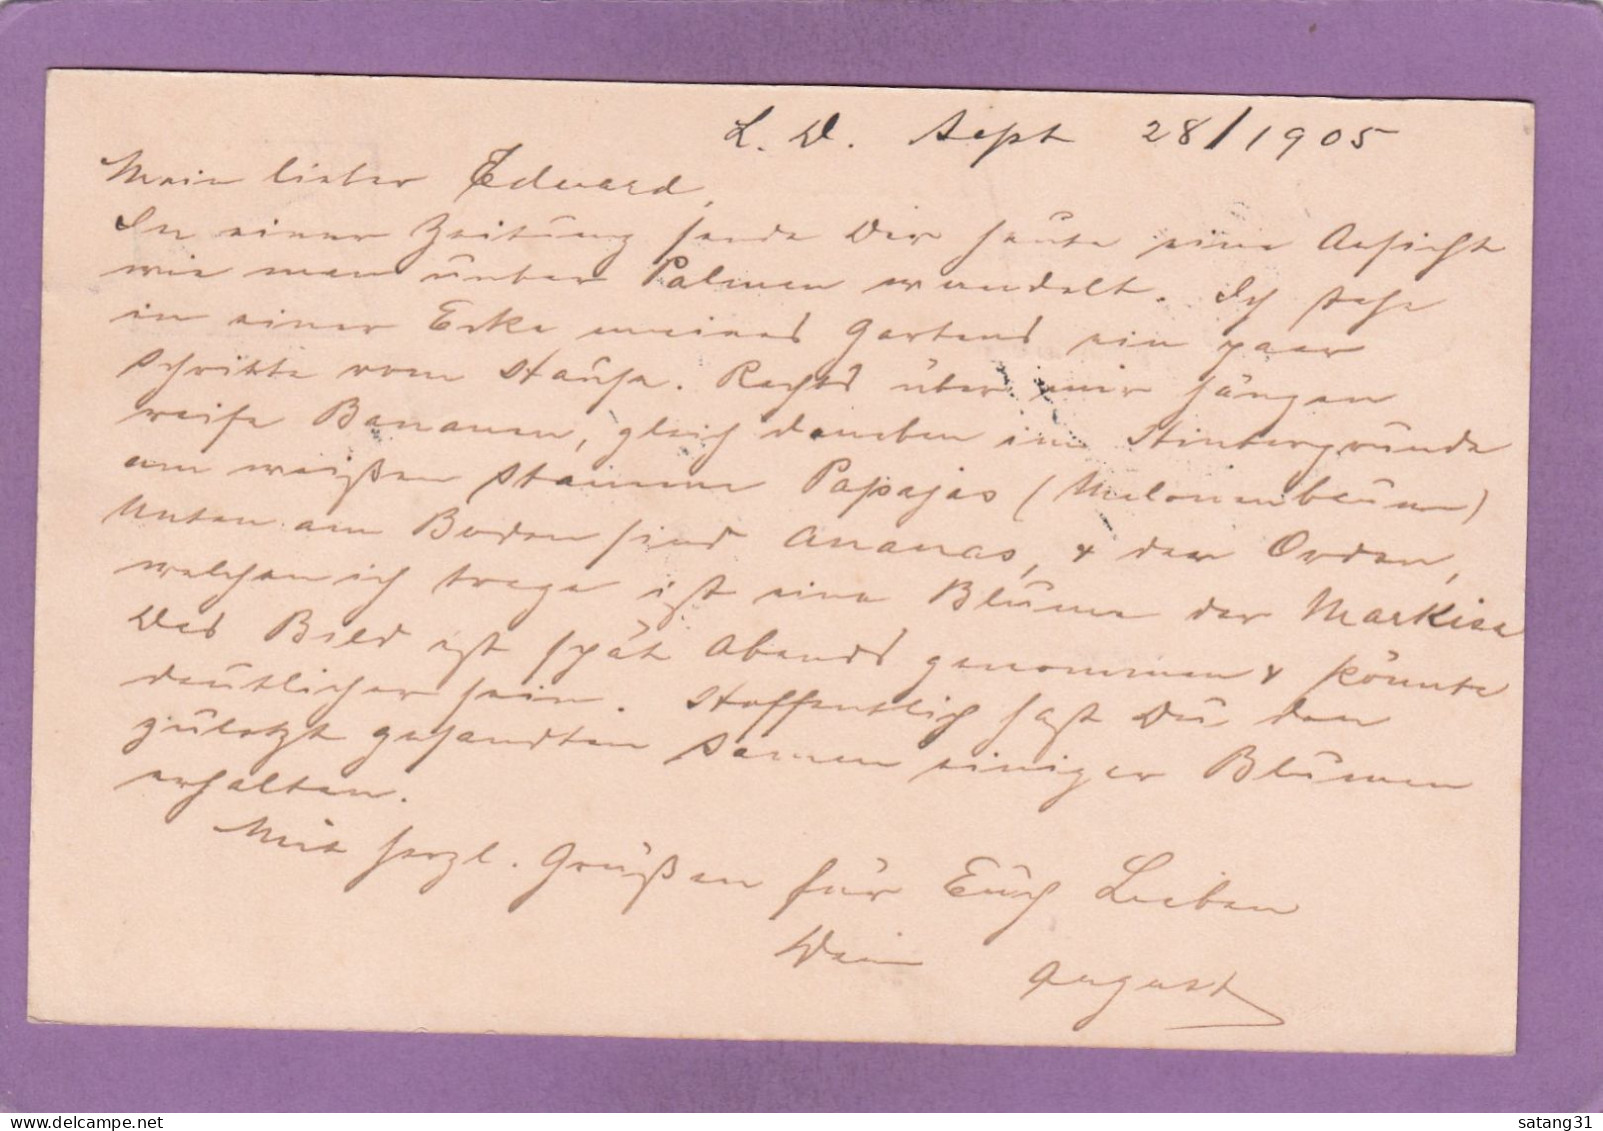 L. D. Sept 28/1905
Mein lieber Eduard,
In einer Zeitung sende Dir heute eine Ansicht
wie man unter Palmen wandelt. Ich stehe
in einer Ecke meines Gartens ein paar
Schritte vom Hause. Rechts über mir hängen
reife Bananen, gleich daneben im Hintergrunde
am weißen Stamme Papajas (Melonenbaum)
Unten am Boden sind Ananas, & der Orden,
welchen ich trage ist eine Blume der Markisa
Das Bild ist spät Abends genommen & könnte
deutlicher sein. Hoffentlich hast Du den
zuletzt gesandten Samen einiger Blumen
erhalten.
Mit herzl. Grüßen für Euch Lieben
Dein August
satang31